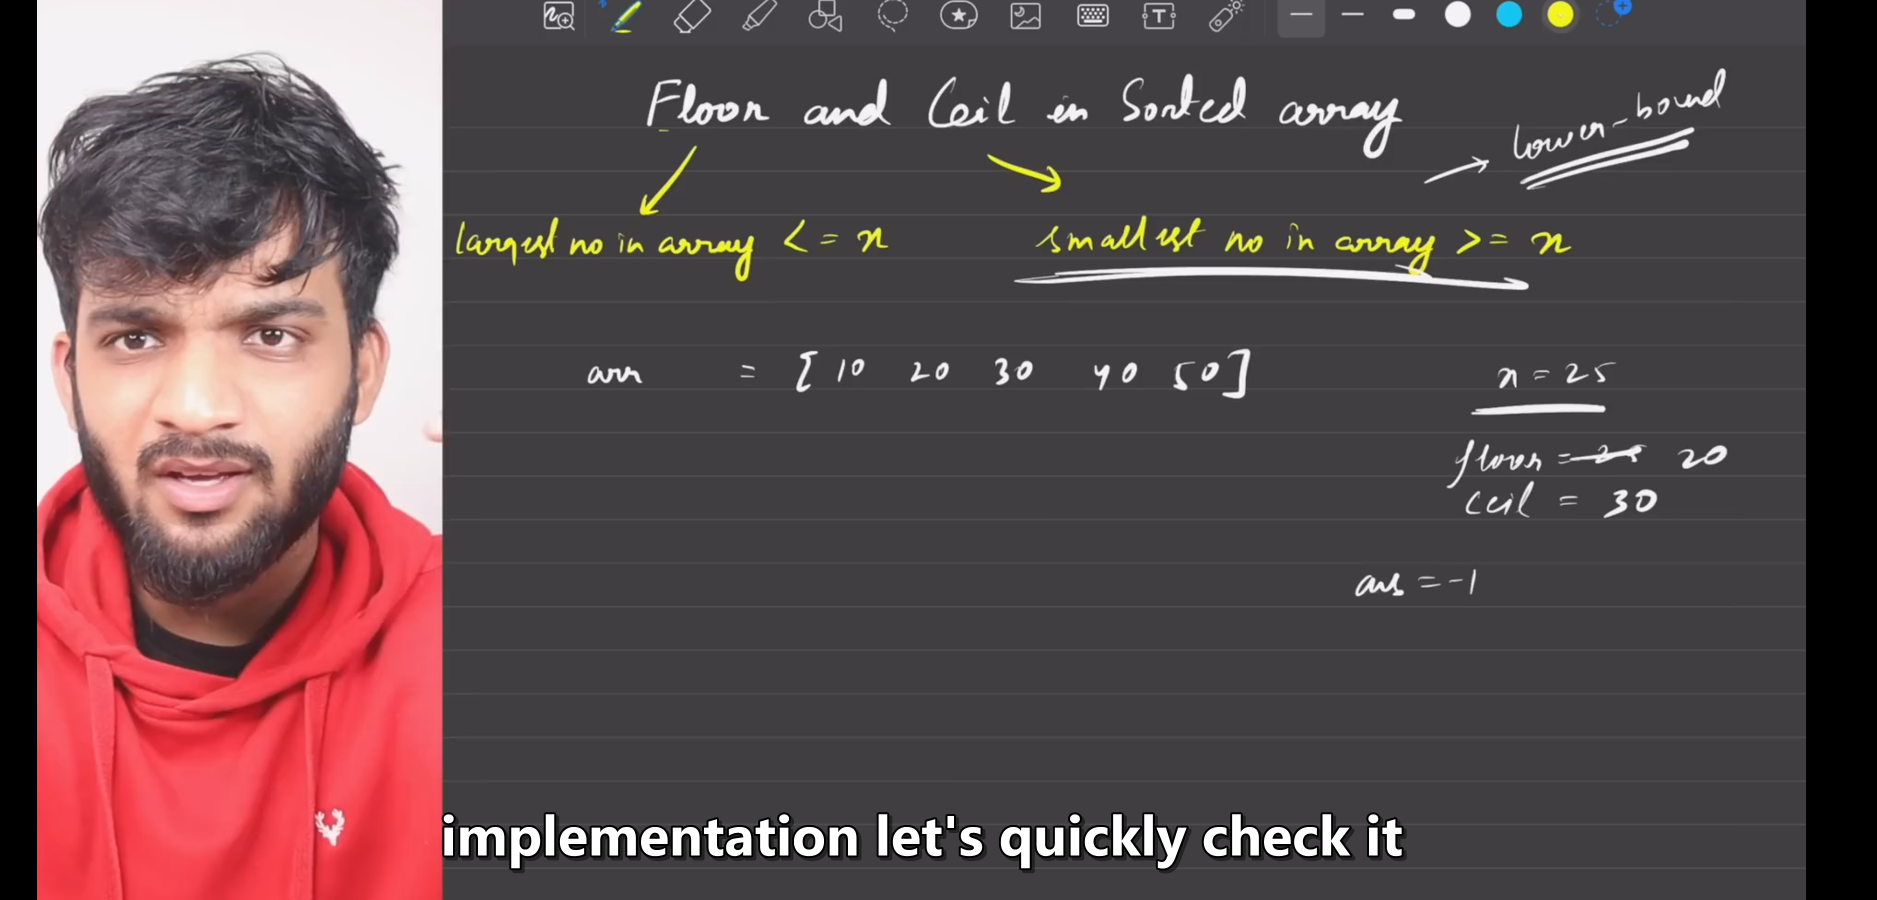 Floor and Ceil in Sorted array
lower-bound
largest no in array <= x
smallest no in array >= x
arr = [10 20 30 40 50]
x = 25
floor = 20
ceil = 30
ans = -1
implementation let's quickly check it